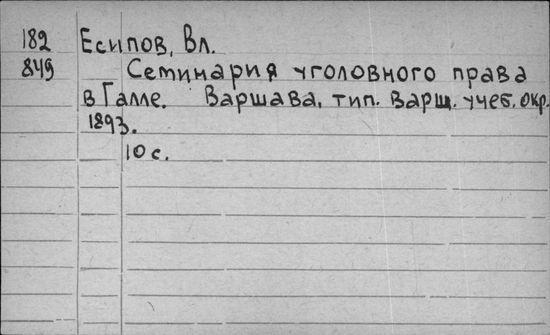 182 Есипов, Вл.
849 Семинария уголовного права
в Галле. Варшава, тип. Варш. учеб. окр.
1893.
10 с.